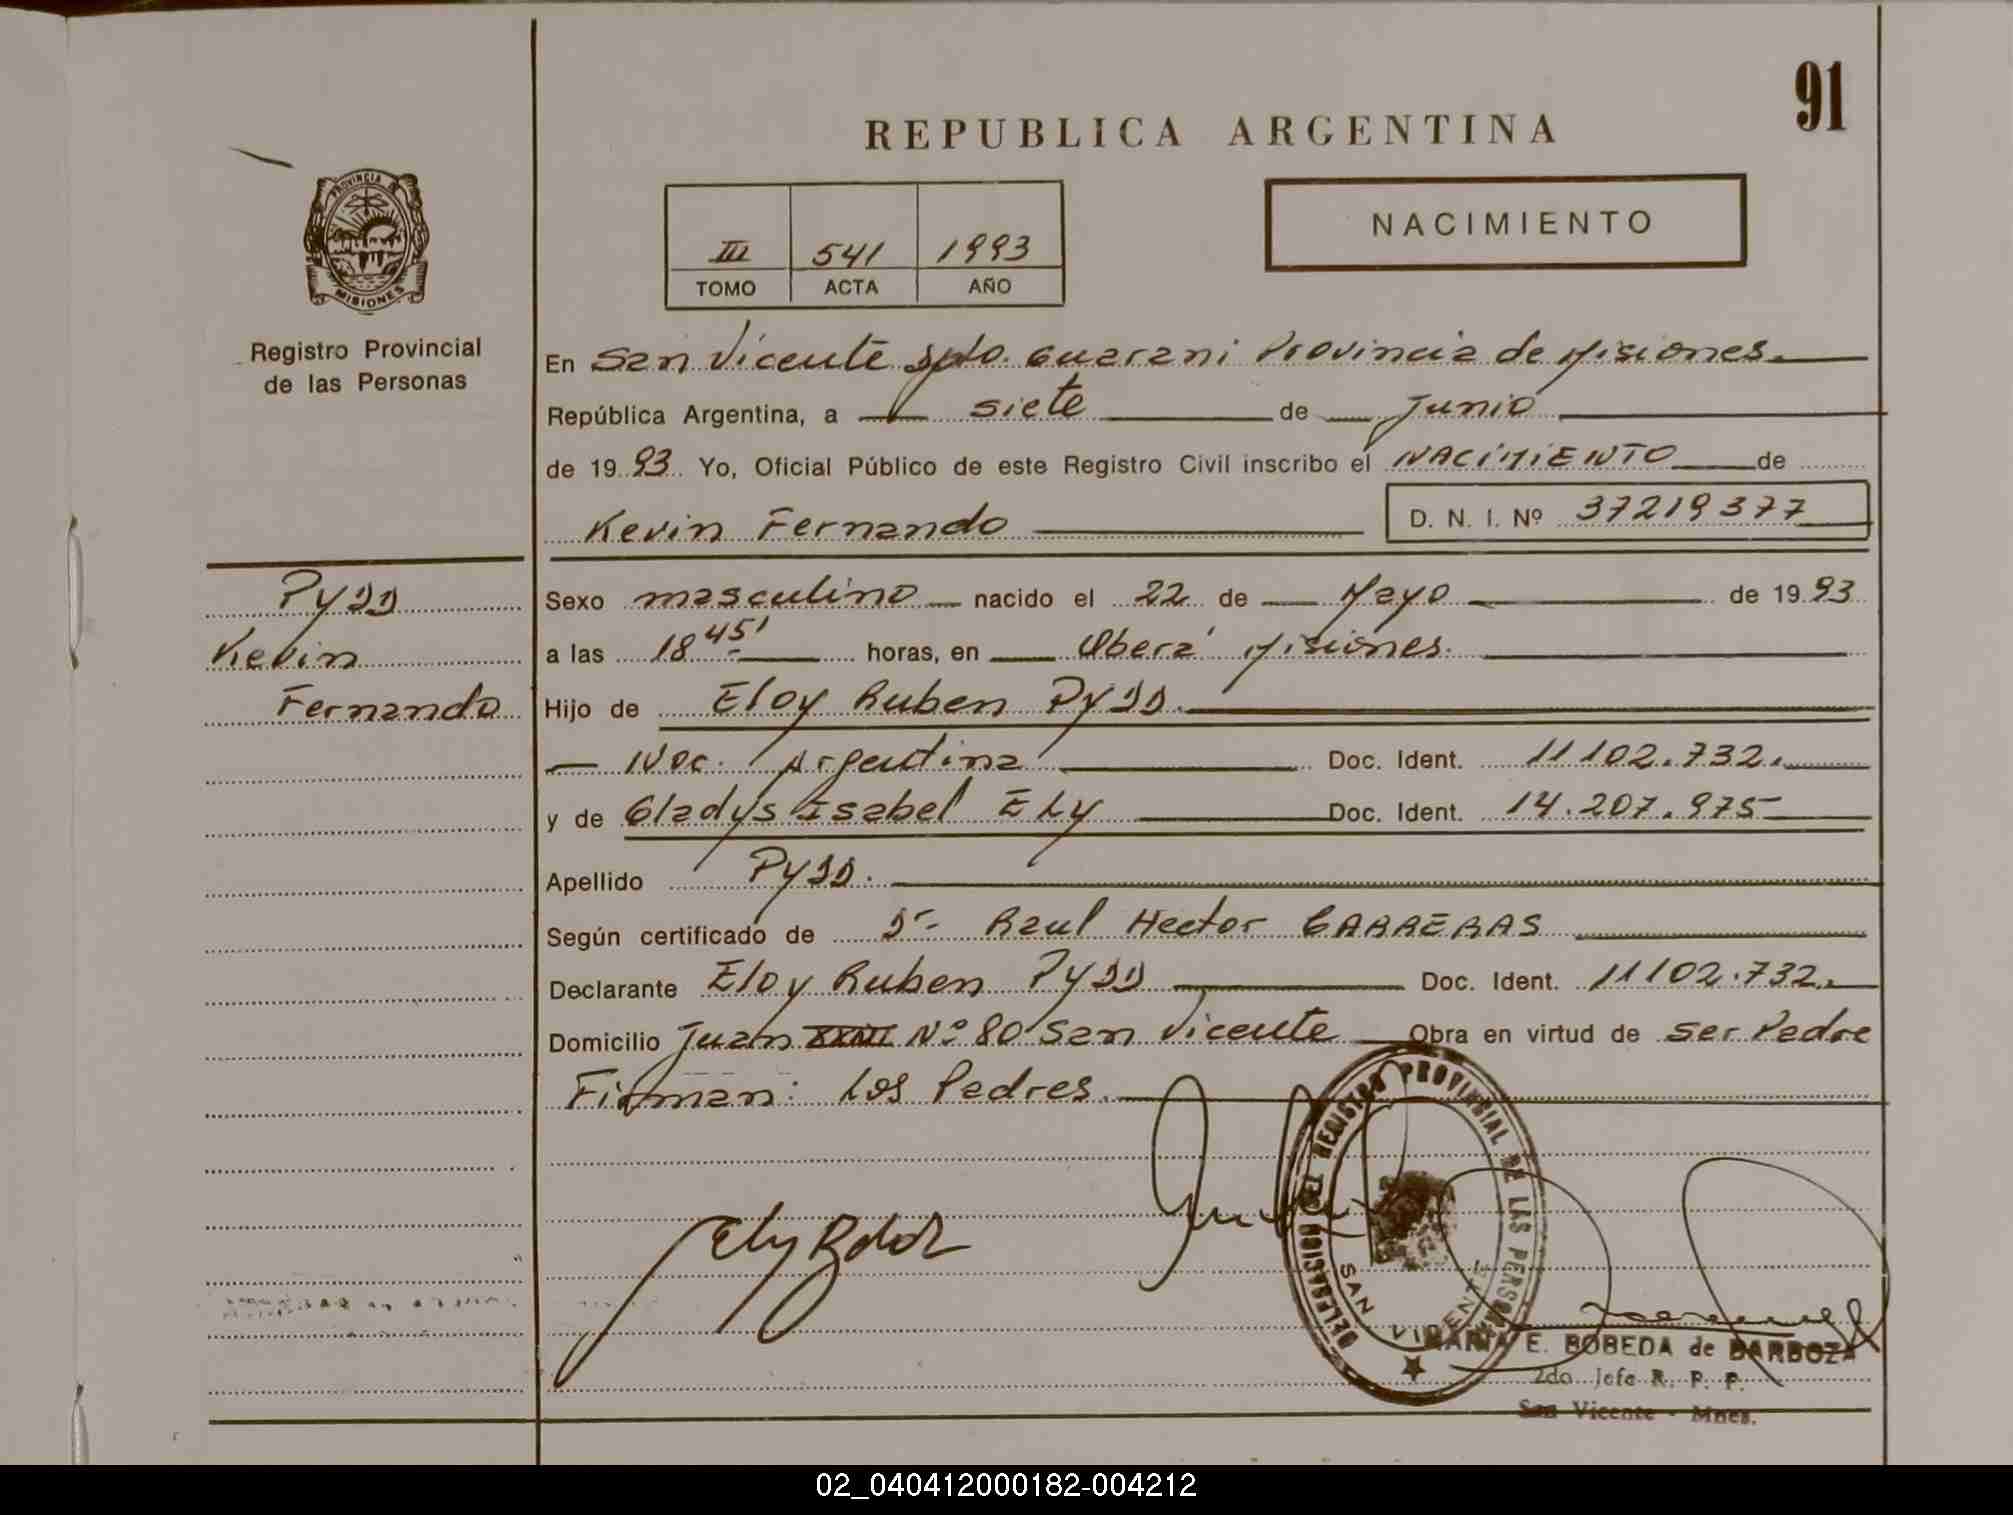 91
REPUBLICA ARGENTINA
PROVINCIA DE
MISIONES
Registro Provincial
de las Personas
III 541 1993
TOMO ACTA AÑO
NACIMIENTO
En San Vicente Dpto. Guarani Provincia de Misiones.
República Argentina, a siete de Junio
de 1993 Yo, Oficial Público de este Registro Civil inscribo el NACIMIENTO de
Kevin Fernando D. N. I. Nº 37219377
PYDD
Kevin
Fernando
Sexo masculino nacido el 22 de Mayo de 1993
a las 18 45' horas, en Oberá Misiones.
Hijo de Eloy Ruben PYDD.
Nac. Argentina Doc. Ident. 11102.732.
y de Gladys Isabel ELY Doc. Ident. 14.207.975
Apellido PYDD.
Según certificado de Dr. Raul Hector CARRERAS
Declarante Eloy Ruben PYDD Doc. Ident. 11102.732.
Domicilio Juan XXIII Nº 80 San Vicente Obra en virtud de ser Padre
Firman: Los Padres.
DELEGACION DEL REGISTRO PROVINCIAL DE LAS PERSONAS
SAN VICENTE
MARIA E. BOBEDA de BARBOZA
2do Jefe R. P. P.
San Vicente - Mnes.
02_040412000182-004212